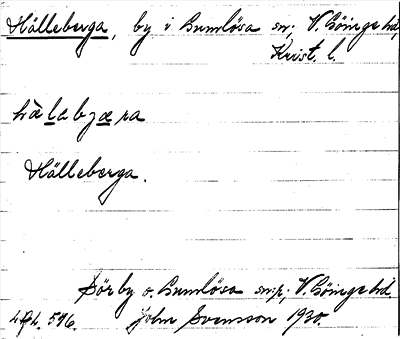 Hälleberga, by i Gumlösa sn; V. Göinge hd,
Krist. l.
hàlabyæra
Hälleberga.
Sörby o. Gumlösa snr; V. Göinge hd.
576. John Svensson 1930.